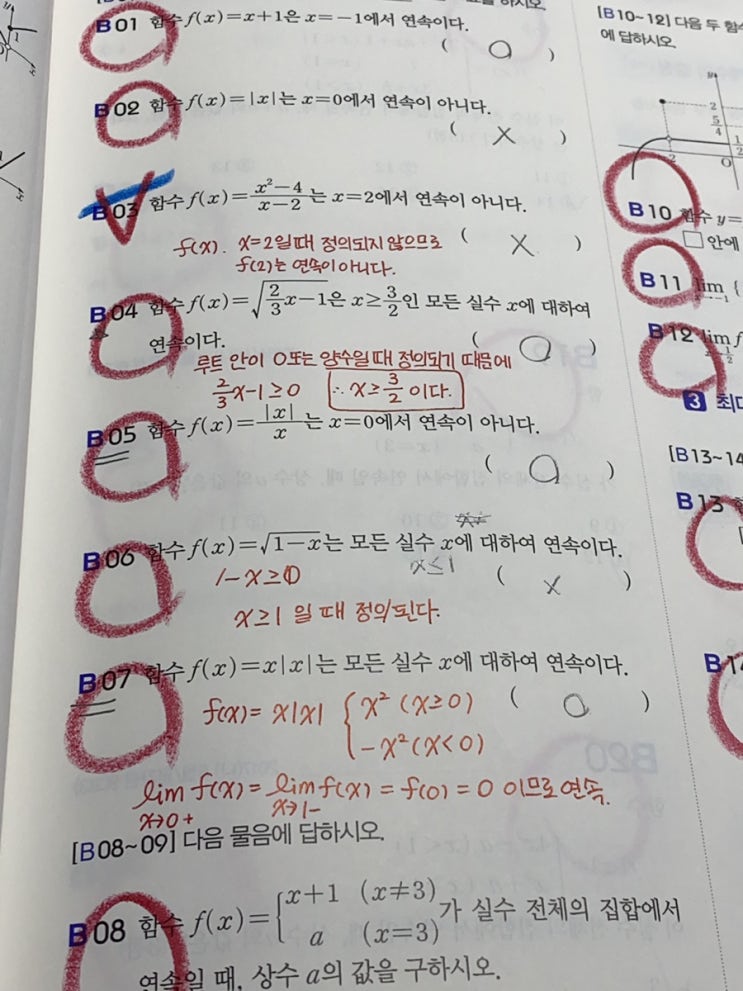 하시오.
B01 함수 f(x)=x+1은 x=-1에서 연속이다.
( O )
B02 함수 f(x)=|x|는 x=0에서 연속이 아니다.
( X )
B03 함수 f(x)=\frac{x²-4}{x-2}는 x=2에서 연속이 아니다.
( X )
f(x). x=2일때 정의되지 않으므로
f(2)는 연속이 아니다.
B04 함수 f(x)=\sqrt{\frac{2}{3}x-1}은 x≥\frac{3}{2}인 모든 실수 x에 대하여
연속이다.
( O )
루트 안이 0또는 양수일때 정의되기 때문에
\frac{2}{3}x-1≥0 ∴x≥\frac{3}{2} 이다.
B05 함수 f(x)=\frac{|x|}{x}는 x=0에서 연속이 아니다.
( O )
B06 함수 f(x)=\sqrt{1-x}는 모든 실수 x에 대하여 연속이다.
1-x≥0 x≤1 ( X )
x≥1 일 때 정의된다.
B07 함수 f(x)=x|x|는 모든 실수 x에 대하여 연속이다.
( O )
f(x)= x|x| { x² (x≥0)
-x² (x<0)
lim f(x)= lim f(x) = f(0) = 0 이므로 연속.
x→0+ x→1-
[B08~09] 다음 물음에 답하시오.
B08 함수 f(x)={ x+1 (x≠3)
a (x=3) 가 실수 전체의 집합에서
연속일 때, 상수 a의 값을 구하시오.
[B10~12] 다음 두 함수
에 답하시오.
y
2
\frac{5}{4}
\frac{1}{2}
-2 O
B10 함수 y=
□안에
B11 lim {
x→-1
B12 lim f
3 최대
[B13~14
B13
B14
B20